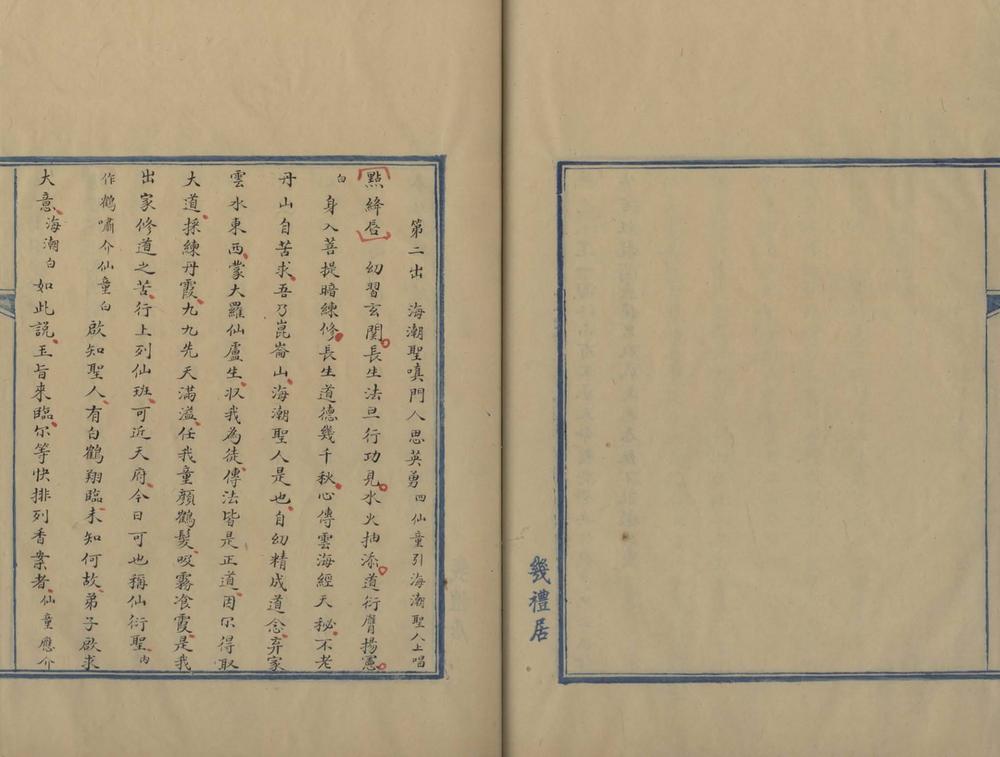 第二出　海潮聖嗔門人思英勇四仙童引海潮聖人上唱
點絳唇　幼習玄関長生法旦行功見水火抽添道衍膺揚憲
白　身入菩提暗練修長生道德幾千秋心傳雲海經天秘不老
丹山自苦求吾乃崑崙山海潮聖人是也自幼精成道念弃家
雲水東西蒙大羅仙盧生収我為徒傳法皆是正道因尔得取
大道採練丹霞九九先天滿溢任我童顏鶴髮吸霧飡霞是我
出家修道之苦行上列仙班可近天府今日可也稱仙衍聖内
作鶴嘯介仙童白　啟知聖人有白鶴翔臨未知何故弟子啟求
大意海潮白　如此説玉旨來臨尔等快排列香案者仙童應介
幾禮居